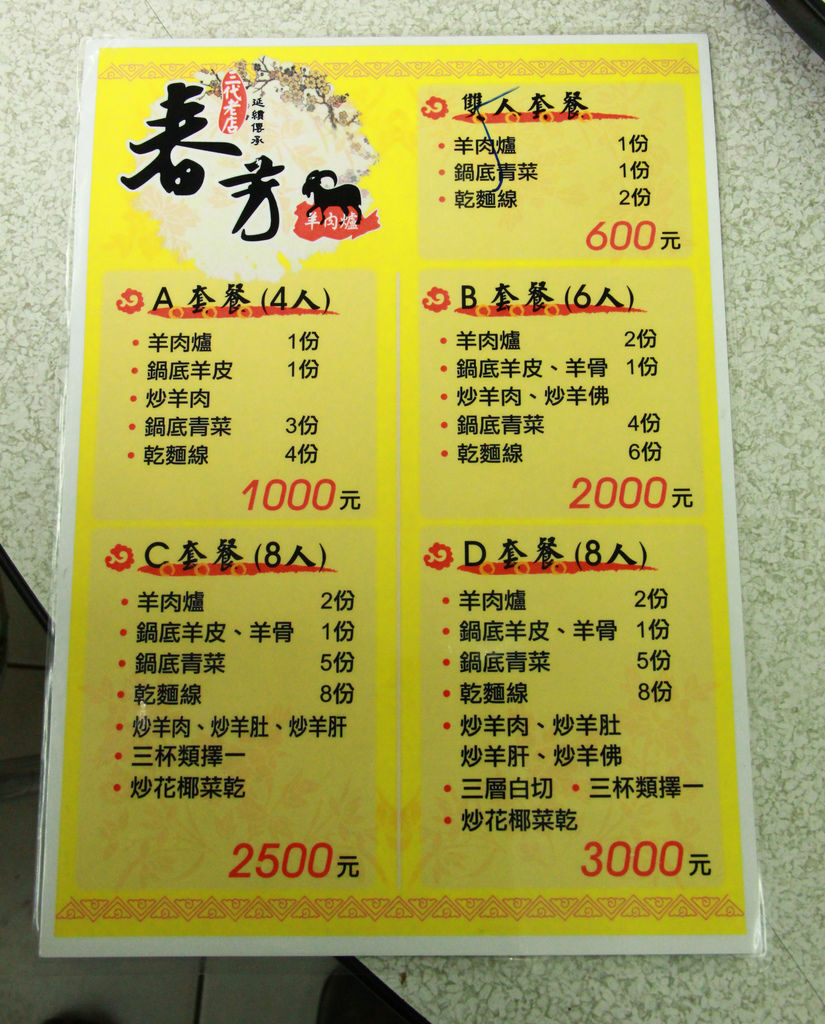 二代老店
延續傳承
春芳
羊肉爐
雙人套餐
羊肉爐 1份
鍋底青菜 1份
乾麵線 2份
600元
A 套餐(4人)
羊肉爐 1份
鍋底羊皮 1份
炒羊肉
鍋底青菜 3份
乾麵線 4份
1000元
B 套餐(6人)
羊肉爐 2份
鍋底羊皮、羊骨 1份
炒羊肉、炒羊佛
鍋底青菜 4份
乾麵線 6份
2000元
C 套餐(8人)
羊肉爐 2份
鍋底羊皮、羊骨 1份
鍋底青菜 5份
乾麵線 8份
炒羊肉、炒羊肚、炒羊肝
三杯類擇一
炒花椰菜乾
2500元
D 套餐(8人)
羊肉爐 2份
鍋底羊皮、羊骨 1份
鍋底青菜 5份
乾麵線 8份
炒羊肉、炒羊肚
炒羊肝、炒羊佛
三層白切 • 三杯類擇一
炒花椰菜乾
3000元